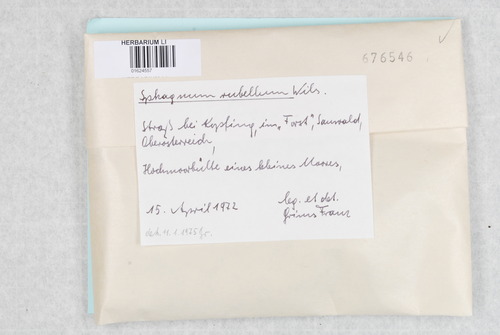 HERBARIUM LI
01624657
676546
Sphagnum rubellum Wils.
Straß bei Kopfing, im "Forst", Sauwald,
Oberösterreich,
Hochmoorbülte eines kleines Moores,
15. April 1972
leg. et det.
Grims Franz